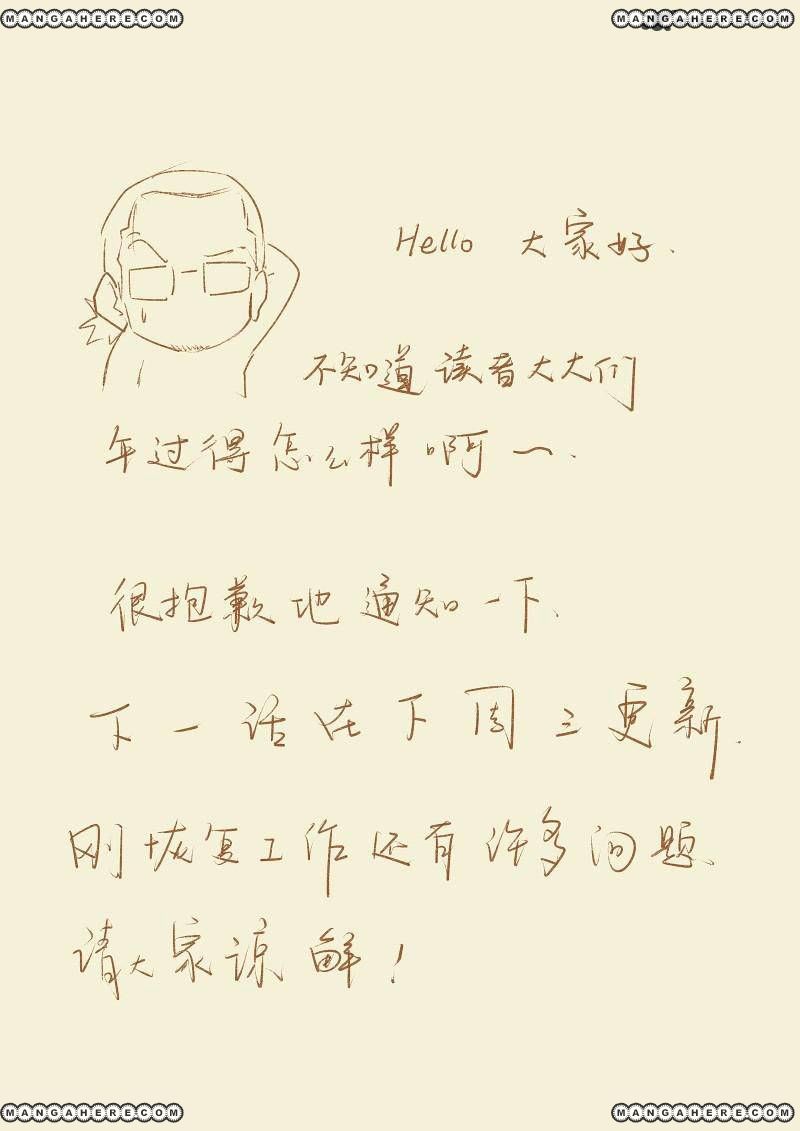 MANGAHERE.COM
MANGAHERE.COM
Hello 大家好.
不知道读者大大们
年过得怎么样啊~.
很抱歉地通知一下.
下一话在下周三更新.
刚恢复工作还有许多问题.
请大家谅解!
MANGAHERE.COM
MANGAHERE.COM